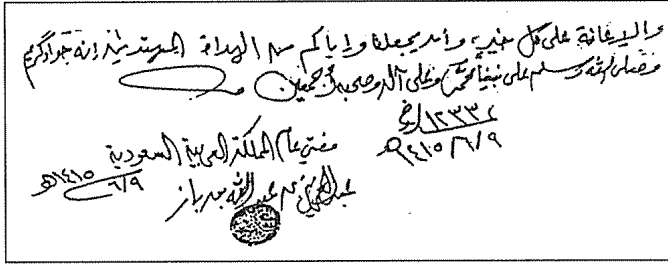 والإعانة على كل خير، وأن يجعلنا وإياكم من الهداة المهتدين إنه جواد كريم
وصلى الله وسلم على نبينا محمد وعلى آله وصحبه أجمعين
١٤١٥/٦/٩هـ
مفتي عام المملكة العربية السعودية
عبد العزيز بن عبد الله بن باز
٦/٩ ١٤١٥هـ